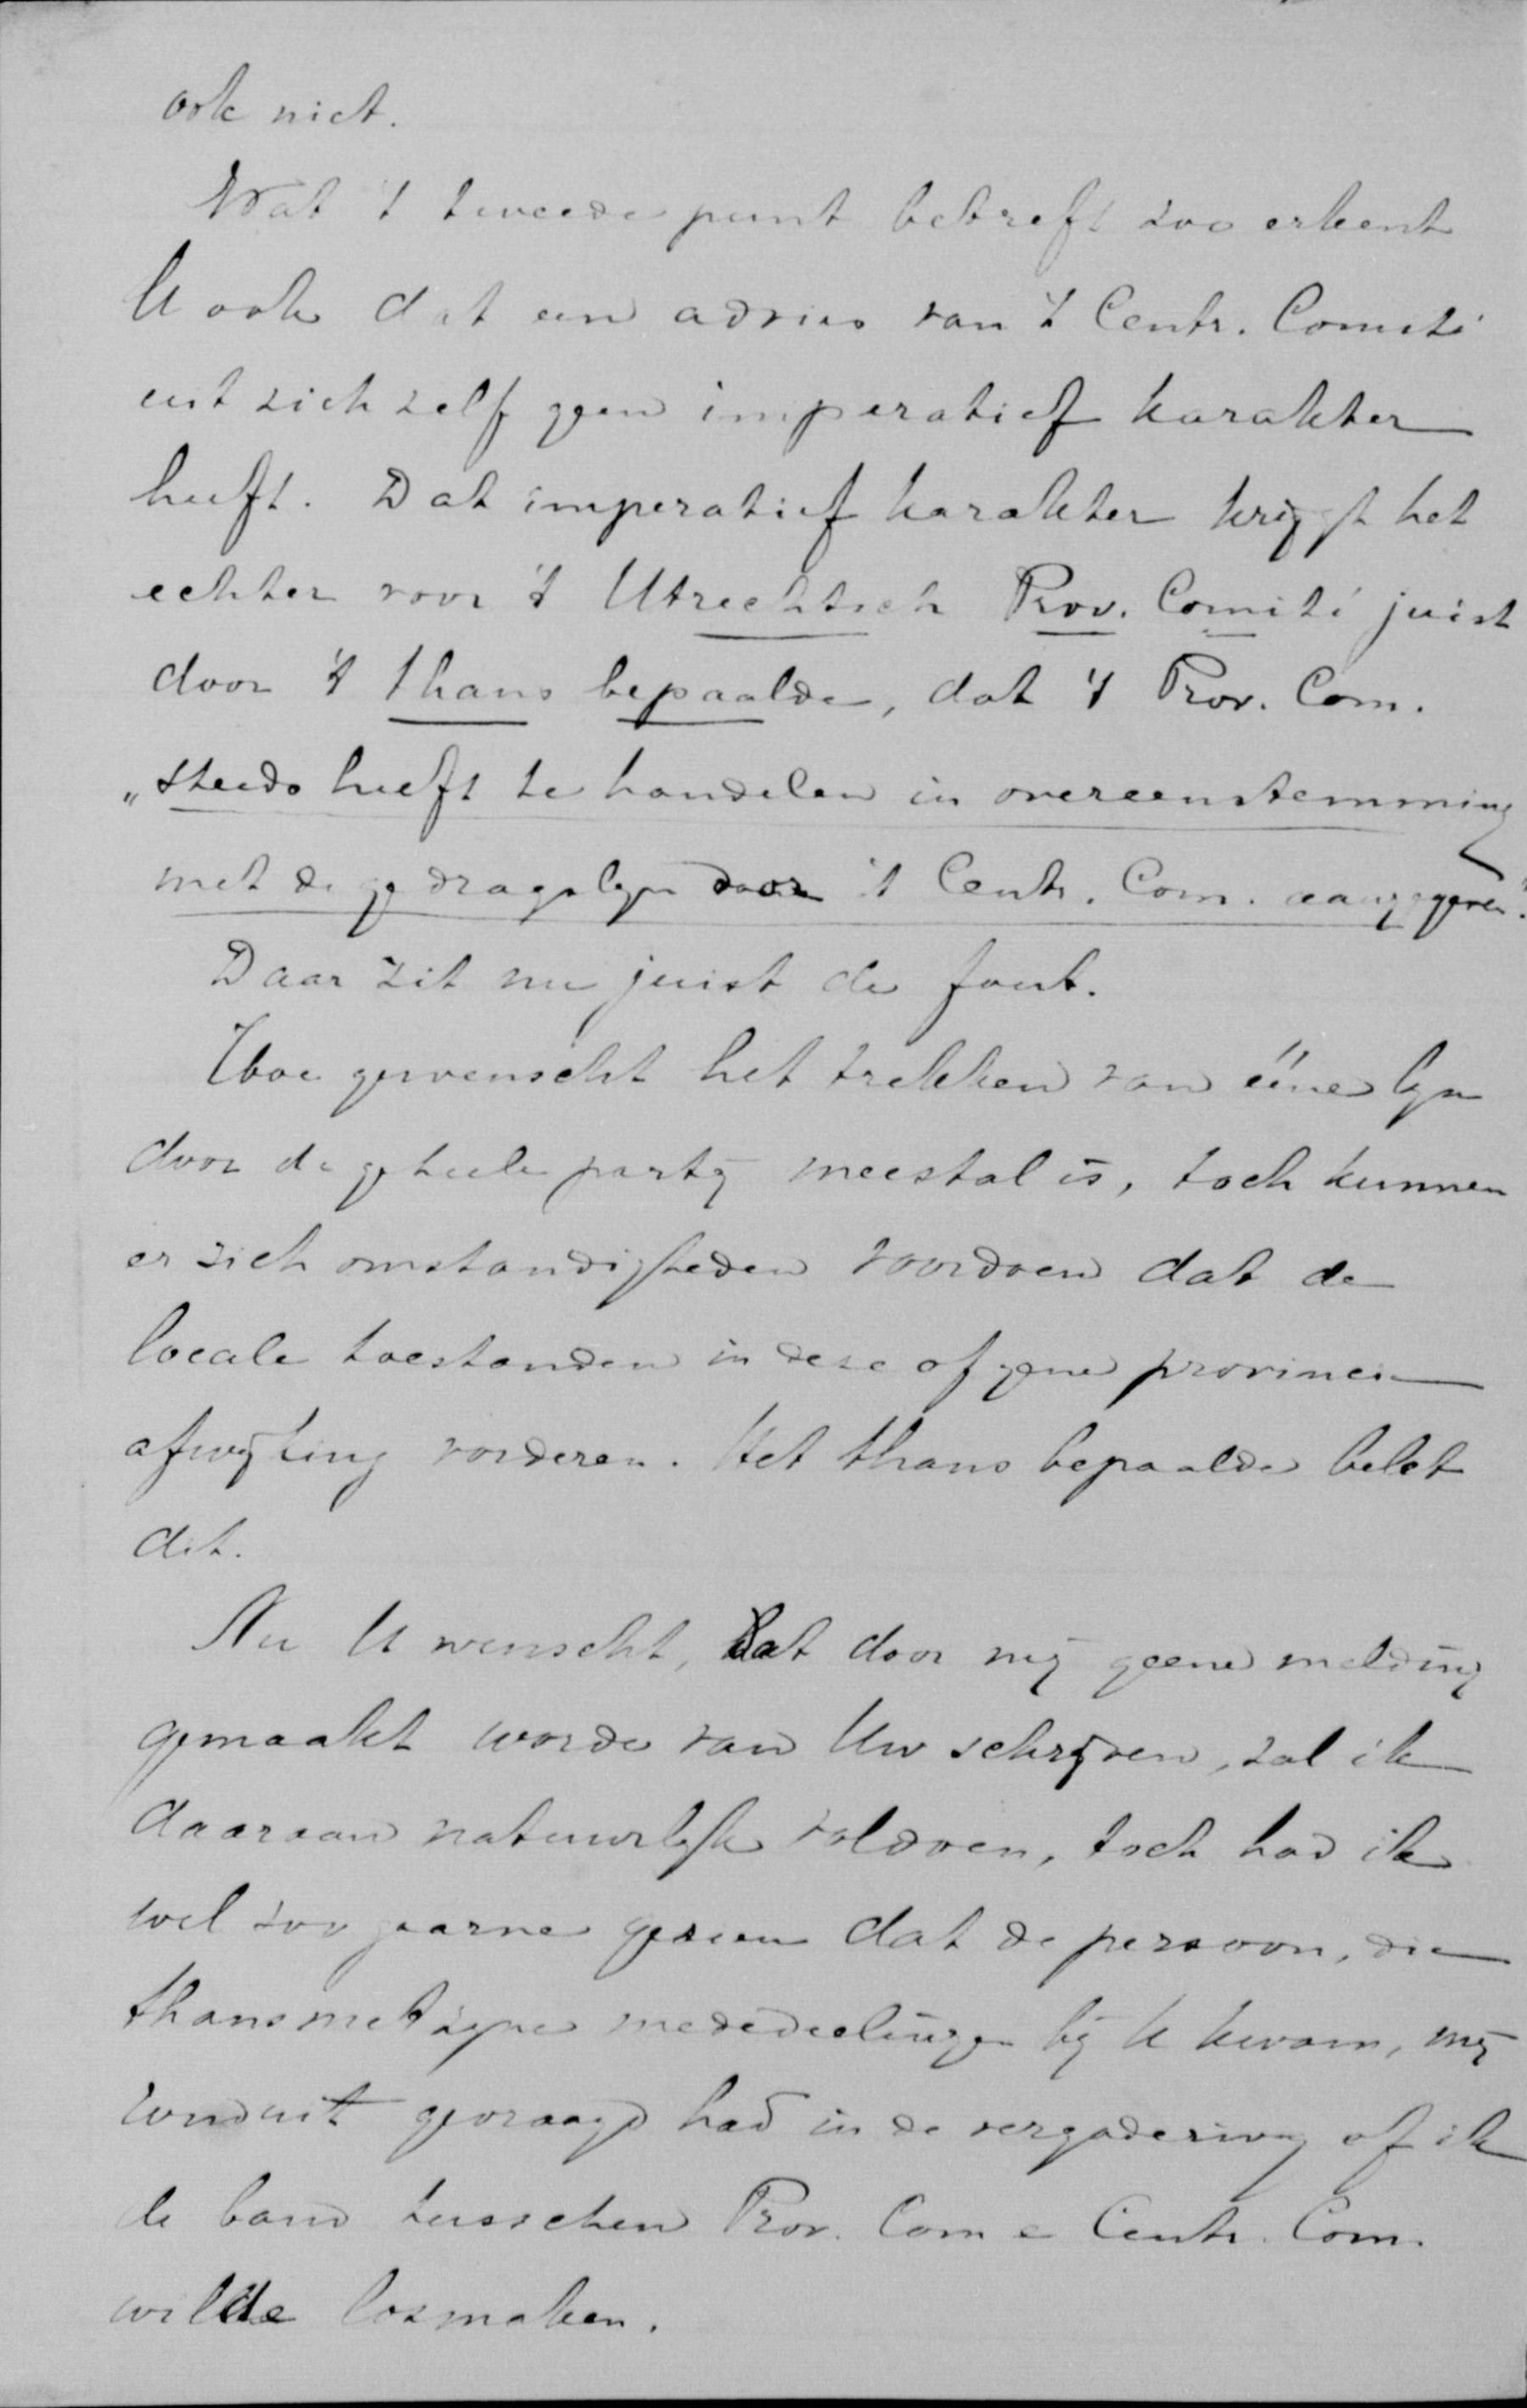 ook niet.
Wat 't tweede punt betreft zoo erkent
U ook dat een advies van 't Centr. Comité
uit zich zelf geen imperatief karakter
heeft. Dat imperatief karakter krijgt het
echter voor 't Utrechtsch Prov. Comité juist
door 't thans bepaalde, dat 't Prov. Com.
„steeds heeft te handelen in overeenstemming
met de gedragslijn door 't Centr. Com. aangegeven".
Daar zit nu juist de fout.
Hoe gewenscht het trekken van ééne lijn
door de geheele partij meestal is, toch kunnen
er zich omstandigheden voordoen dat de
locale toestanden in deze of gene provincie
afwijking vorderen. Het thans bepaalde belet
dit.
Nu U wenscht, dat door mij geene melding
gemaakt worde van Uw schrijven, zal ik
daaraan natuurlijk voldoen, toch had ik
wel zoo gaarne gezien dat de persoon, die
thans met zijne mededeelingen bij U kwam, mij
ronduit gevraagd had in de vergadering of ik
de band tusschen Prov. Com e Centr. Com.
wilde losmaken.